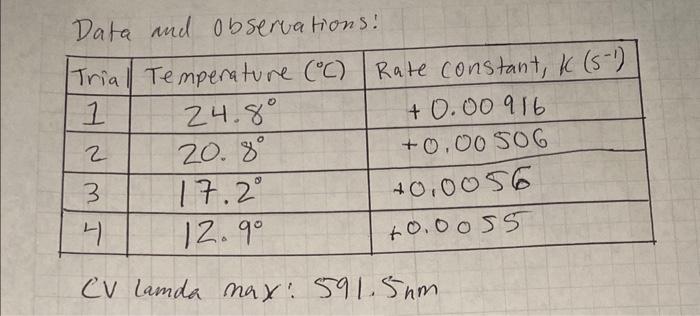 Data and observations:
Trial Temperature (°C) Rate constant, K (s⁻¹)
1 24.8° +0.00916
2 20.8° +0.00506
3 17.2° +0.0056
4 12.9° +0.0055
CV lamda max: 591.5nm